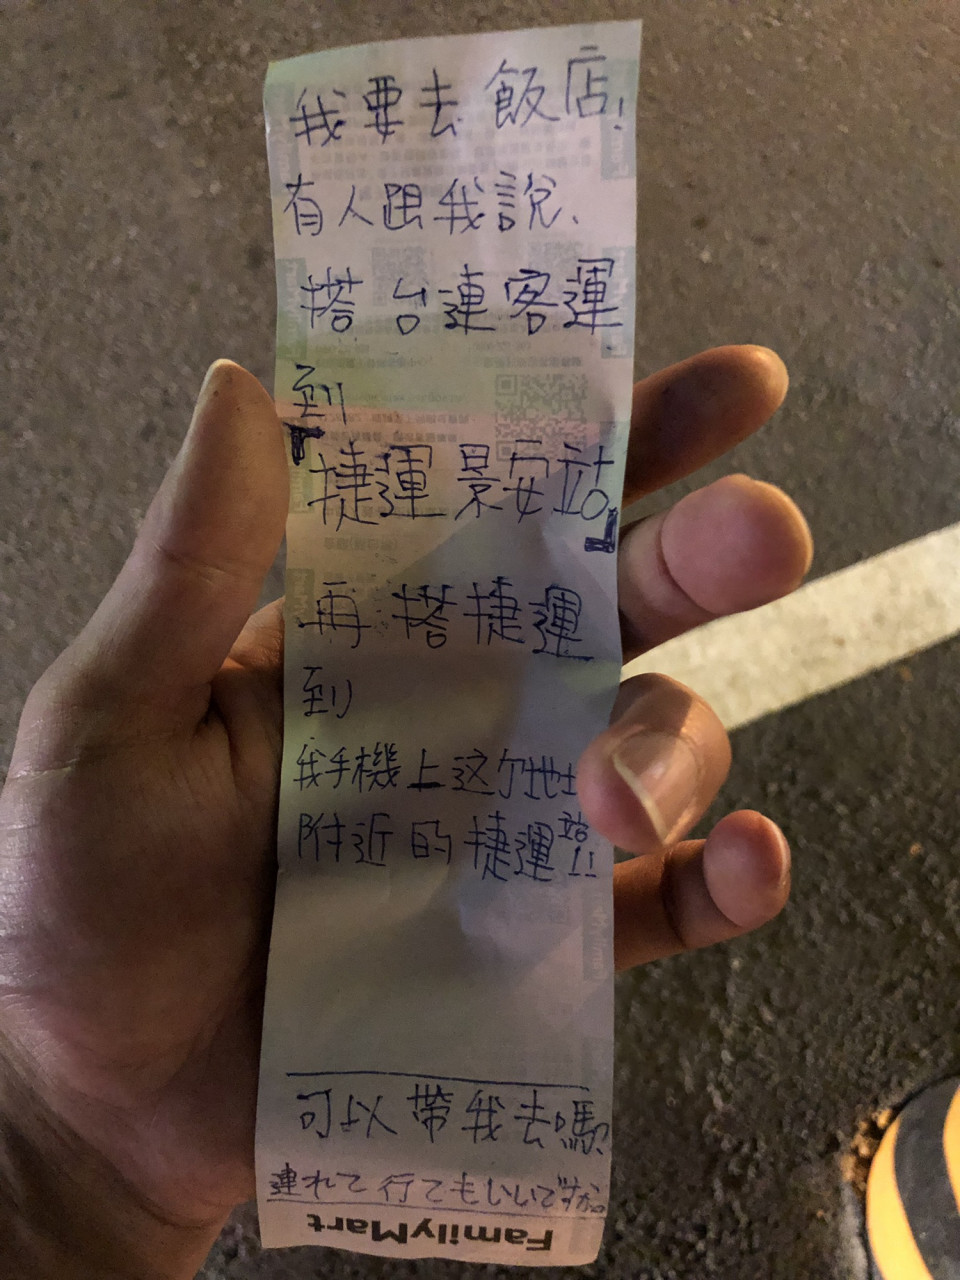 我要去飯店!
有人跟我說、
搭台連客運
到
「捷運景安站」
再搭捷運
到
我手機上这个地
附近的捷運站!!
可以帶我去嗎
連れて行てもいいですか。
FamilyMart